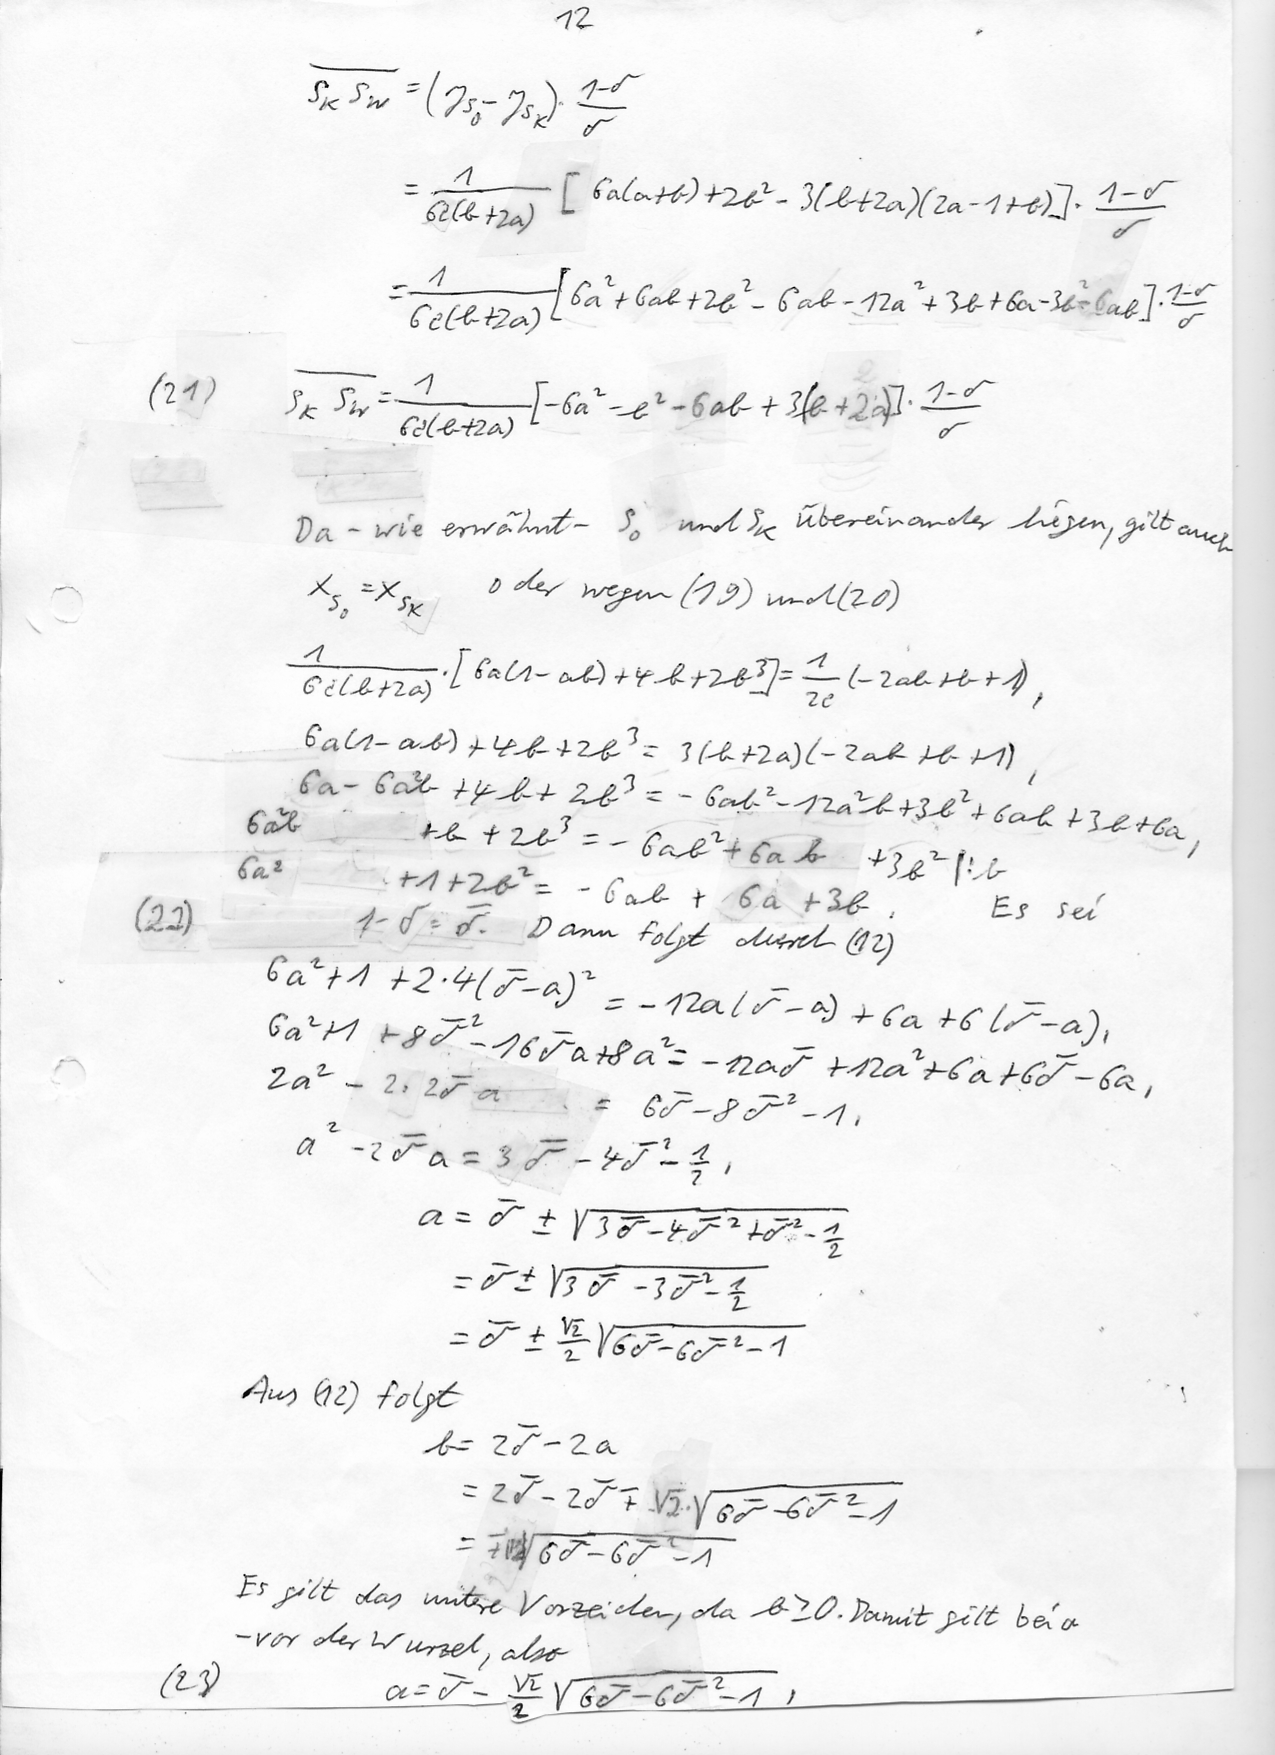 12
S_K S_W = (y_{S_0} - y_{S_K}) · (1-σ)/σ
= 1/(6c(b+2a)) [6a(a+b)+2b² - 3(b+2a)(2a-1+b)] · (1-σ)/σ
= 1/(6c(b+2a)) [6a²+6ab+2b² - 6ab - 12a² + 3b + 6a - 3b² - 6ab] · (1-σ)/σ
(21) S_K S_W = 1/(6c(b+2a)) [-6a² - b² - 6ab + 3(b+2a)] · (1-σ)/σ
Da - wie erwähnt - S_0 und S_K übereinander liegen, gilt auch
x_{S_0} = x_{S_K} oder wegen (19) und (20)
1/(6c(b+2a)) · [6a(1-ab)+4b+2b³] = 1/(2c) (-2ab+b+1),
6a(1-ab)+4b+2b³ = 3(b+2a)(-2ab+b+1),
6a - 6a²b + 4b + 2b³ = -6ab² - 12a²b + 3b² + 6ab + 3b + 6a,
6a²b + b + 2b³ = -6ab² + 6ab + 3b² |:b
6a² + 1 + 2b² = -6ab + 6a + 3b. Es sei
(22) 1-σ = σ̄. Dann folgt durch (12)
6a² + 1 + 2·4(σ̄-a)² = -12a(σ̄-a) + 6a + 6(σ̄-a),
6a²+1 + 8σ̄² - 16σ̄a + 8a² = -12aσ̄ + 12a² + 6a + 6σ̄ - 6a,
2a² - 2·2σ̄a = 6σ̄ - 8σ̄² - 1,
a² - 2σ̄a = 3σ̄ - 4σ̄² - 1/2,
a = σ̄ ± √(3σ̄ - 4σ̄² + σ̄² - 1/2)
= σ̄ ± √(3σ̄ - 3σ̄² - 1/2)
= σ̄ ± √2/2 √(6σ̄ - 6σ̄² - 1)
Aus (12) folgt
b = 2σ̄ - 2a
= 2σ̄ - 2σ̄ ∓ √2·√(6σ̄ - 6σ̄² - 1)
= ∓ √(6σ̄ - 6σ̄² - 1)
Es gilt das untere Vorzeichen, da b ≥ 0. Damit gilt bei a
- vor der Wurzel, also
(23) a = σ̄ - √2/2 √(6σ̄ - 6σ̄² - 1),